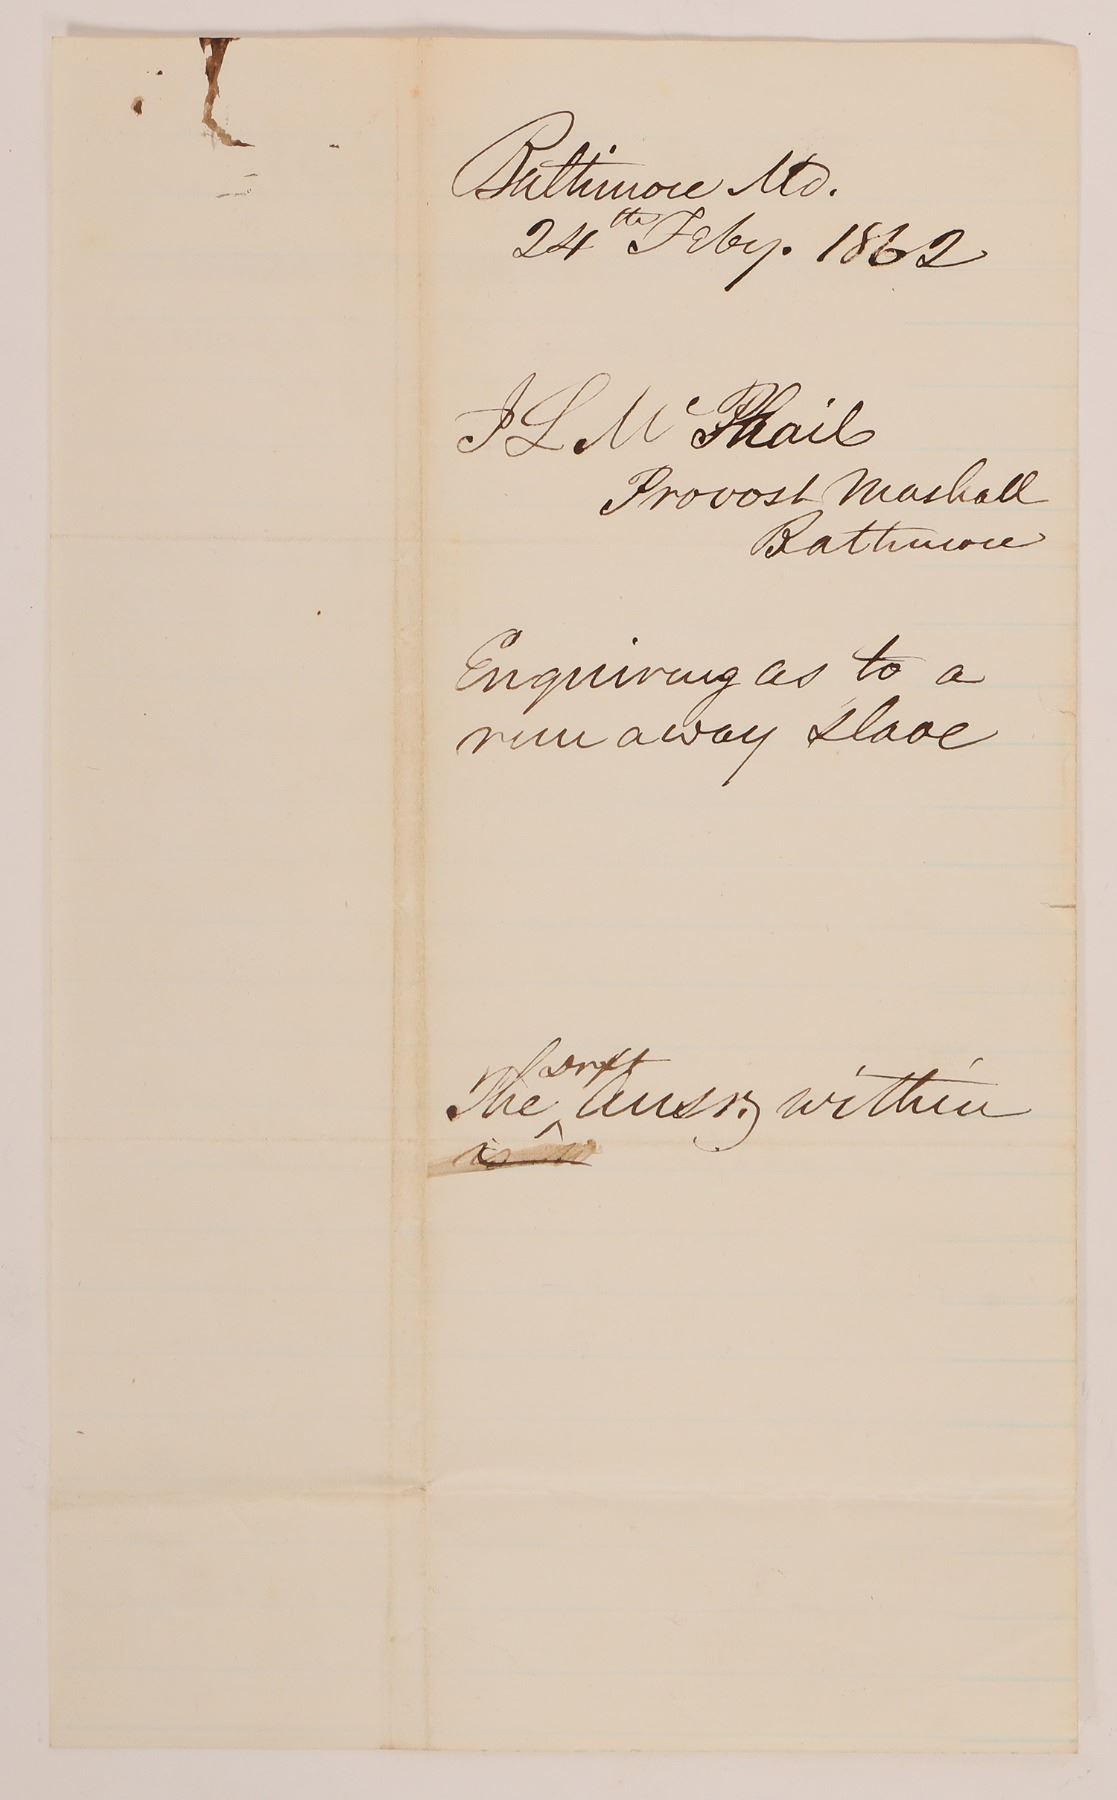 Baltimore Md.
24th Feby. 1862
J L Mc Phail
Provost Mashall
Baltimore
Enquiring as to a
run away slave
The Drft Ansr. within
is in